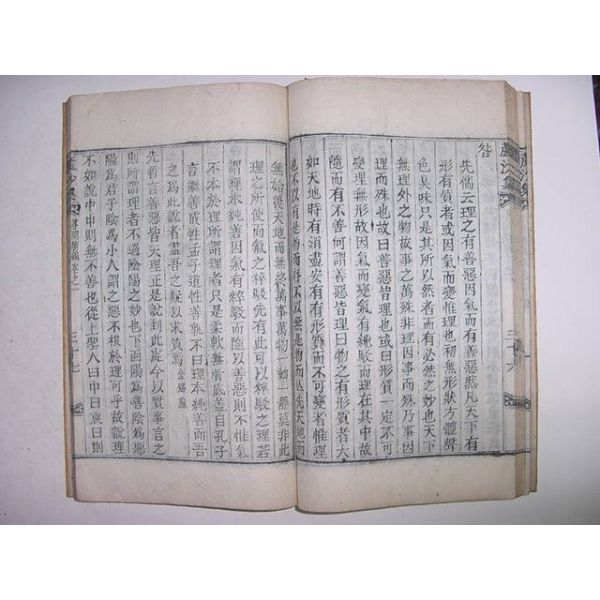 蘆沙集
三十六
答
先儒云理之有善惡因氣而有善惡然凡天下有
形有質者或因氣而變惟理也初無形狀方體聲
色臭味只是其所以然者而有必然之妙也天下
無理外之物故事之萬殊非理因事而殊乃事因
理而殊也故曰善惡皆理也或曰形有一定不可
變理無形故因氣而變氣有純駁而理在其中故
隨而有不善何謂善惡皆理曰物之有形質者六
如天地時有消盡安有有形質而不可變者惟理
也不以有物而
無始後天地而無終萬事萬物一動一靜莫非此
理之所使而氣之粹駁先有此可以粹駁之理若
謂理本純善因氣有粹駁而隨以善惡則不惟氣
不本於理所謂理者只是柔軟無著甚矣孔子
言繼善成性孟子道性善孰不曰理本純善而吾
之爲此說者盡吾之疑以求質焉
先哲言善惡皆天理正是說到此處今以實事言之
則所謂理者不過陰陽之妙也下面陽爲善陰爲惡
陽爲君子陰爲小人謂之惡不根於理可乎故說理
不如說中中則無不善也從上聖人曰中曰衷曰則
三十七